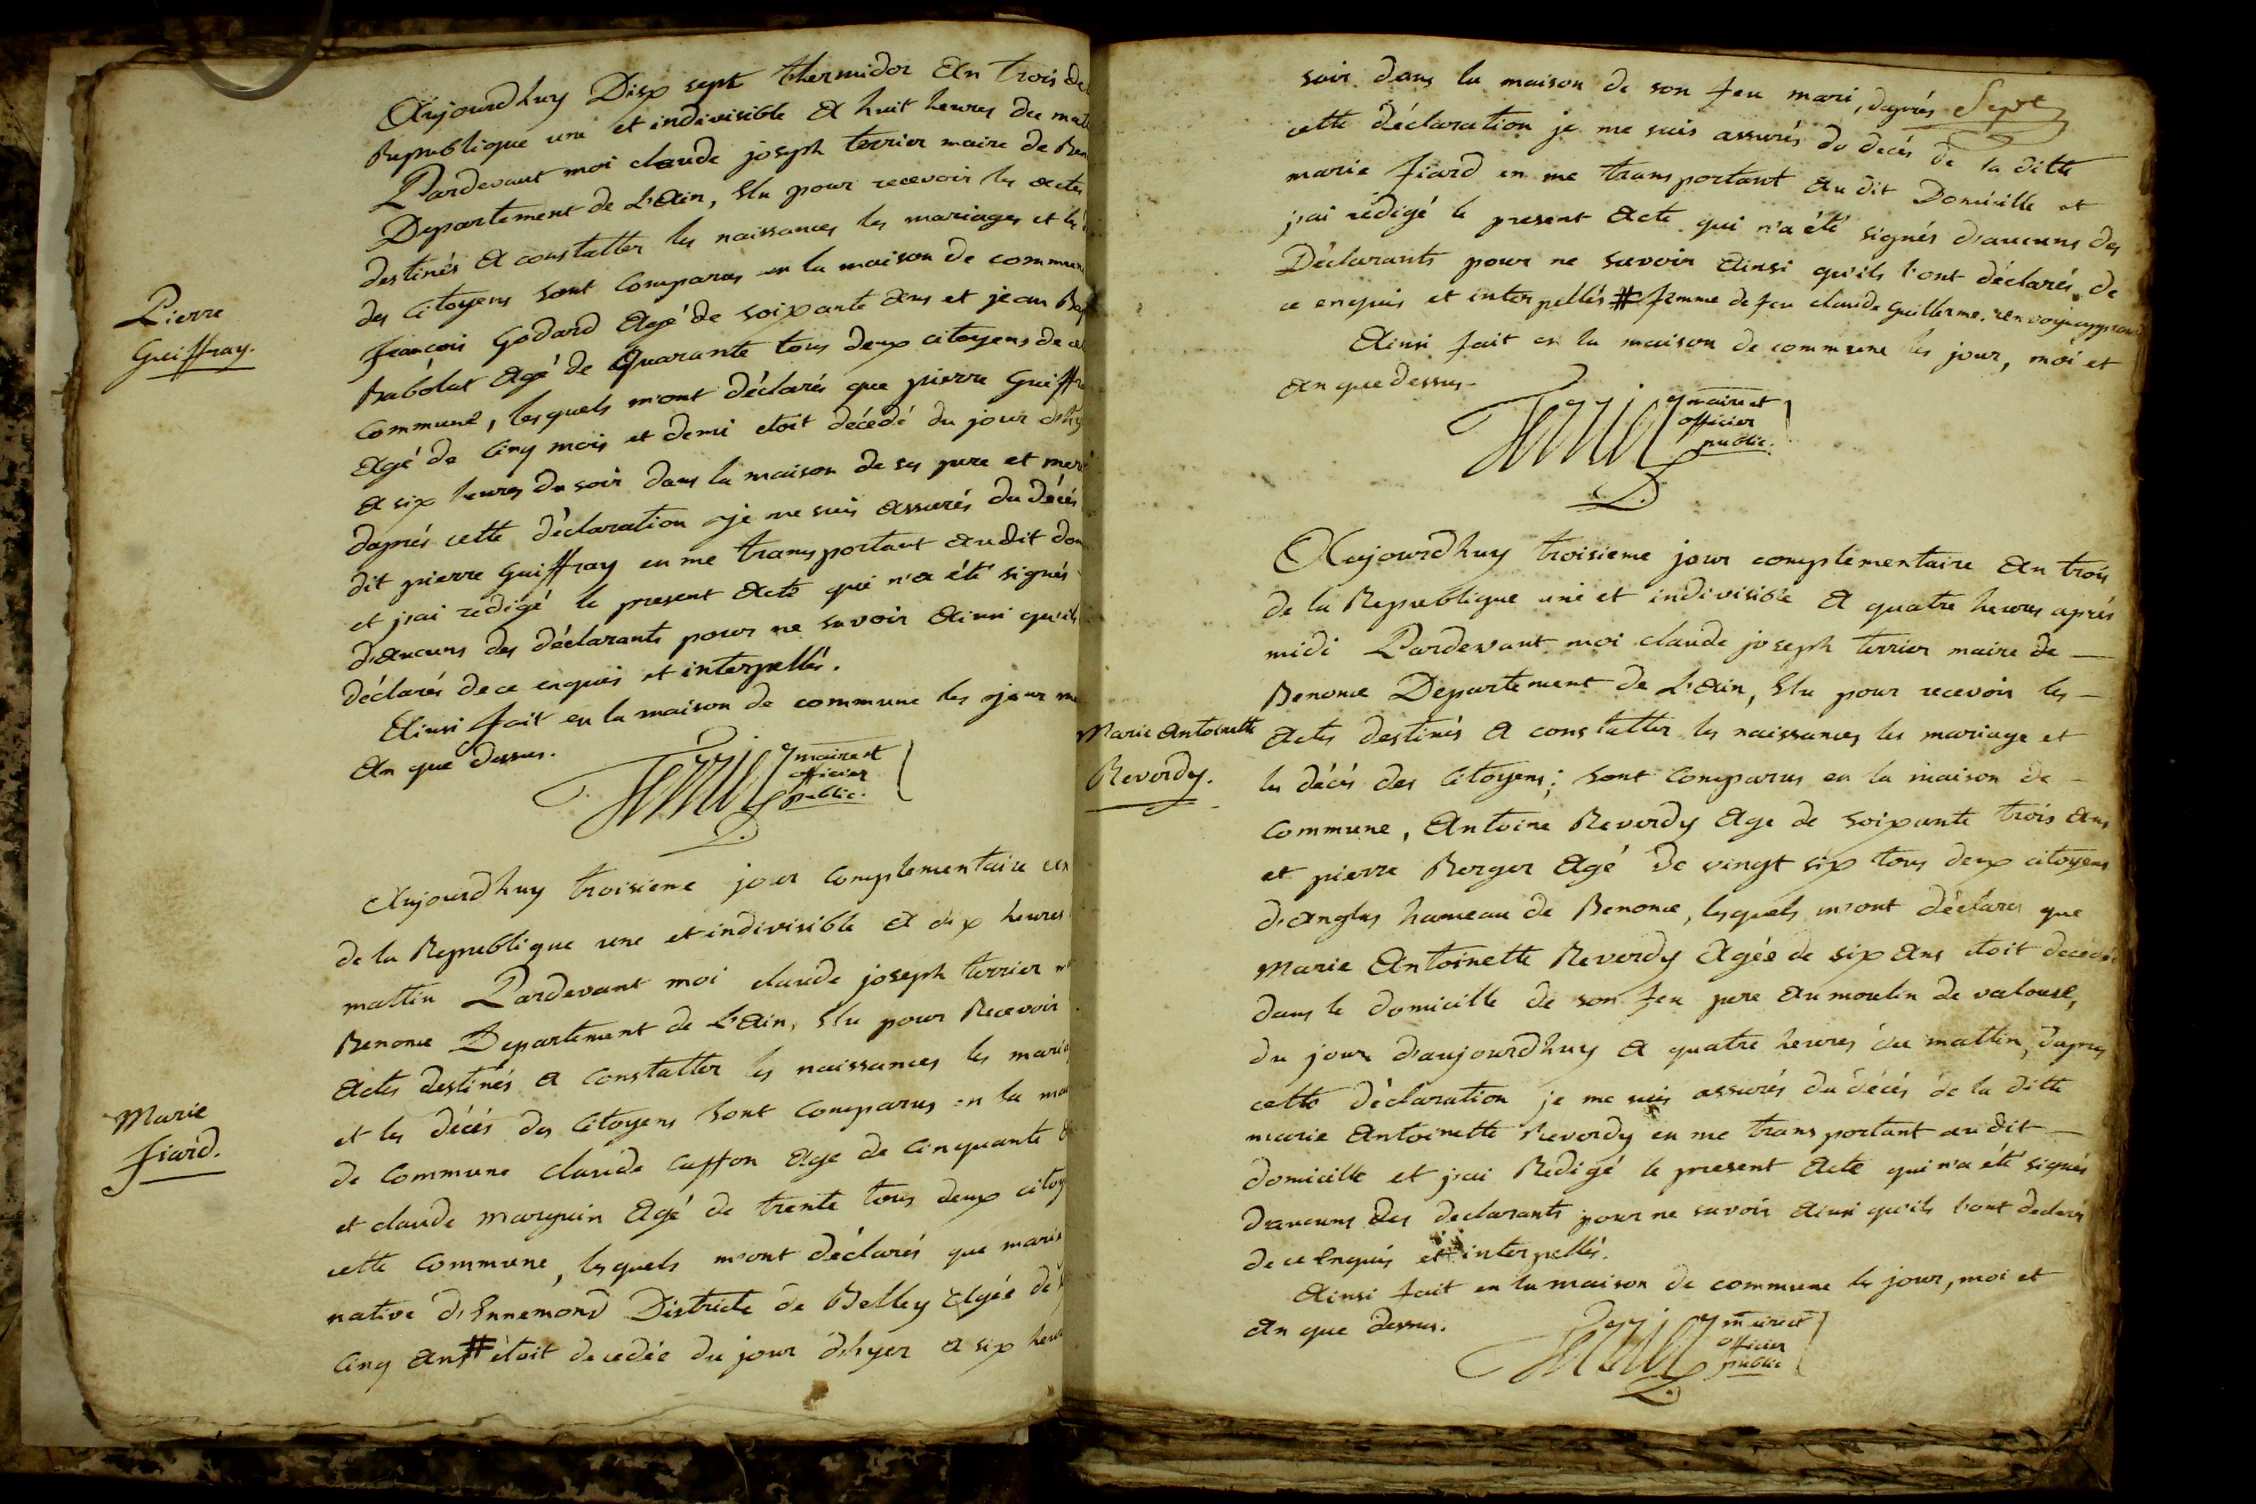 Aujourdhuy Dix sept thermidor an trois de
Republique une et indivisible a huit heures du mat
Pardevant moi claude joseph terrier maire de Ben
Departement de L'ain, Elu pour recevoir les actes
destinés a constatter les naissances les mariages et les
des Citoyens sont Comparus en la maison de commune
Pierre
Guiffray.
francois Godard agé de soixante ans et jean Bap
Babolat agé de Quarante tous deux citoyens de ce
Commune, lesquels m'ont déclarés que pierre Guiffr
agé de Cinq mois et demi etoit décédé du jour d'hy
a six heures du soir dans la maison de ses pere et mere
daprés cette déclaration je me suis assurés du décés
dit pierre Guiffray en me transportant audit dom
et j'ai redigé le present acte qui n'a été signés
d'aucuns des déclarants pour ne savoir ainsi qu'ils
déclarés de ce enquis et interpellés.
Ainsi fait en la maison de commune les jour mo
an que dessus.
Terrier maire et
officier
public.
Aujourdhuy troisieme jour Complementaire an
de la Republique une et indivisible a dix heures
mattin Pardevant moi claude joseph terrier m
Benonce Departement de L'ain, Elu pour Recevoir
actes destinés a Constatter les naissances les mariag
et les décés des Citoyens sont Comparus en la mai
Marie
fiard.
de Commune claude Caffon age de Cinquante
et claude marguin agé de trente tous deux citoy
cette Commune, lesquels m'ont déclarés que marie
native d'Ennemond Districte de Belley agée de
Cinq ans # étoit decedée du jour d'hyer a six heu
soir dans la maison de son feu mari, daprés Sept
cette déclaration je me suis assurés du decés de la ditte
marie fiard en me transportant audit Domicille et
j'ai rédigé le present acte qui n'a été signés d'aucuns des
Déclarants pour ne savoir ainsi qu'ils l'ont déclarés de
ce enquis et interpellés # femme de feu claude Guillerme. renvoy approuv
Ainsi fait en la maison de commune les jour, moi et
an que dessus.
Terrier maire et
officier
public.
Aujourdhuy troisieme jour complementaire an trois
de la Republique une et indivisible a quatre heures aprés
midi Pardevant moi claude joseph terrier maire de
Benonce Departement de L'ain, Elu pour recevoir les
Marie Antoinette
Reverdy.
actes destinés a constatter les naissances les mariage et
les décés des Citoyens; sont Comparus en la maison de
Commune, Antoine Reverdy age de soixante trois ans
et pierre Berger agé de vingt six tous deux citoyens
d'anglas hameau de Benonce, lesquels m'ont déclarés que
marie antoinette Reverdy agée de six ans étoit decedée
dans le domicille de son feu pere au moulin de valouse,
du jour d'aujourdhuy a quatre heures du mattin, daprés
cette déclaration je me suis assurés du décés de la ditte
marie antoinette Reverdy en me transportant audit
domicille et j'ai Redigé le present acte qui n'a été signés
d'aucuns des declarants pour ne savoir ainsi qu'ils l'ont declarés
de ce Enquis et interpellés.
Ainsi fait en la maison de commune les jour, moi et
an que dessus.
Terrier maire et
officier
public